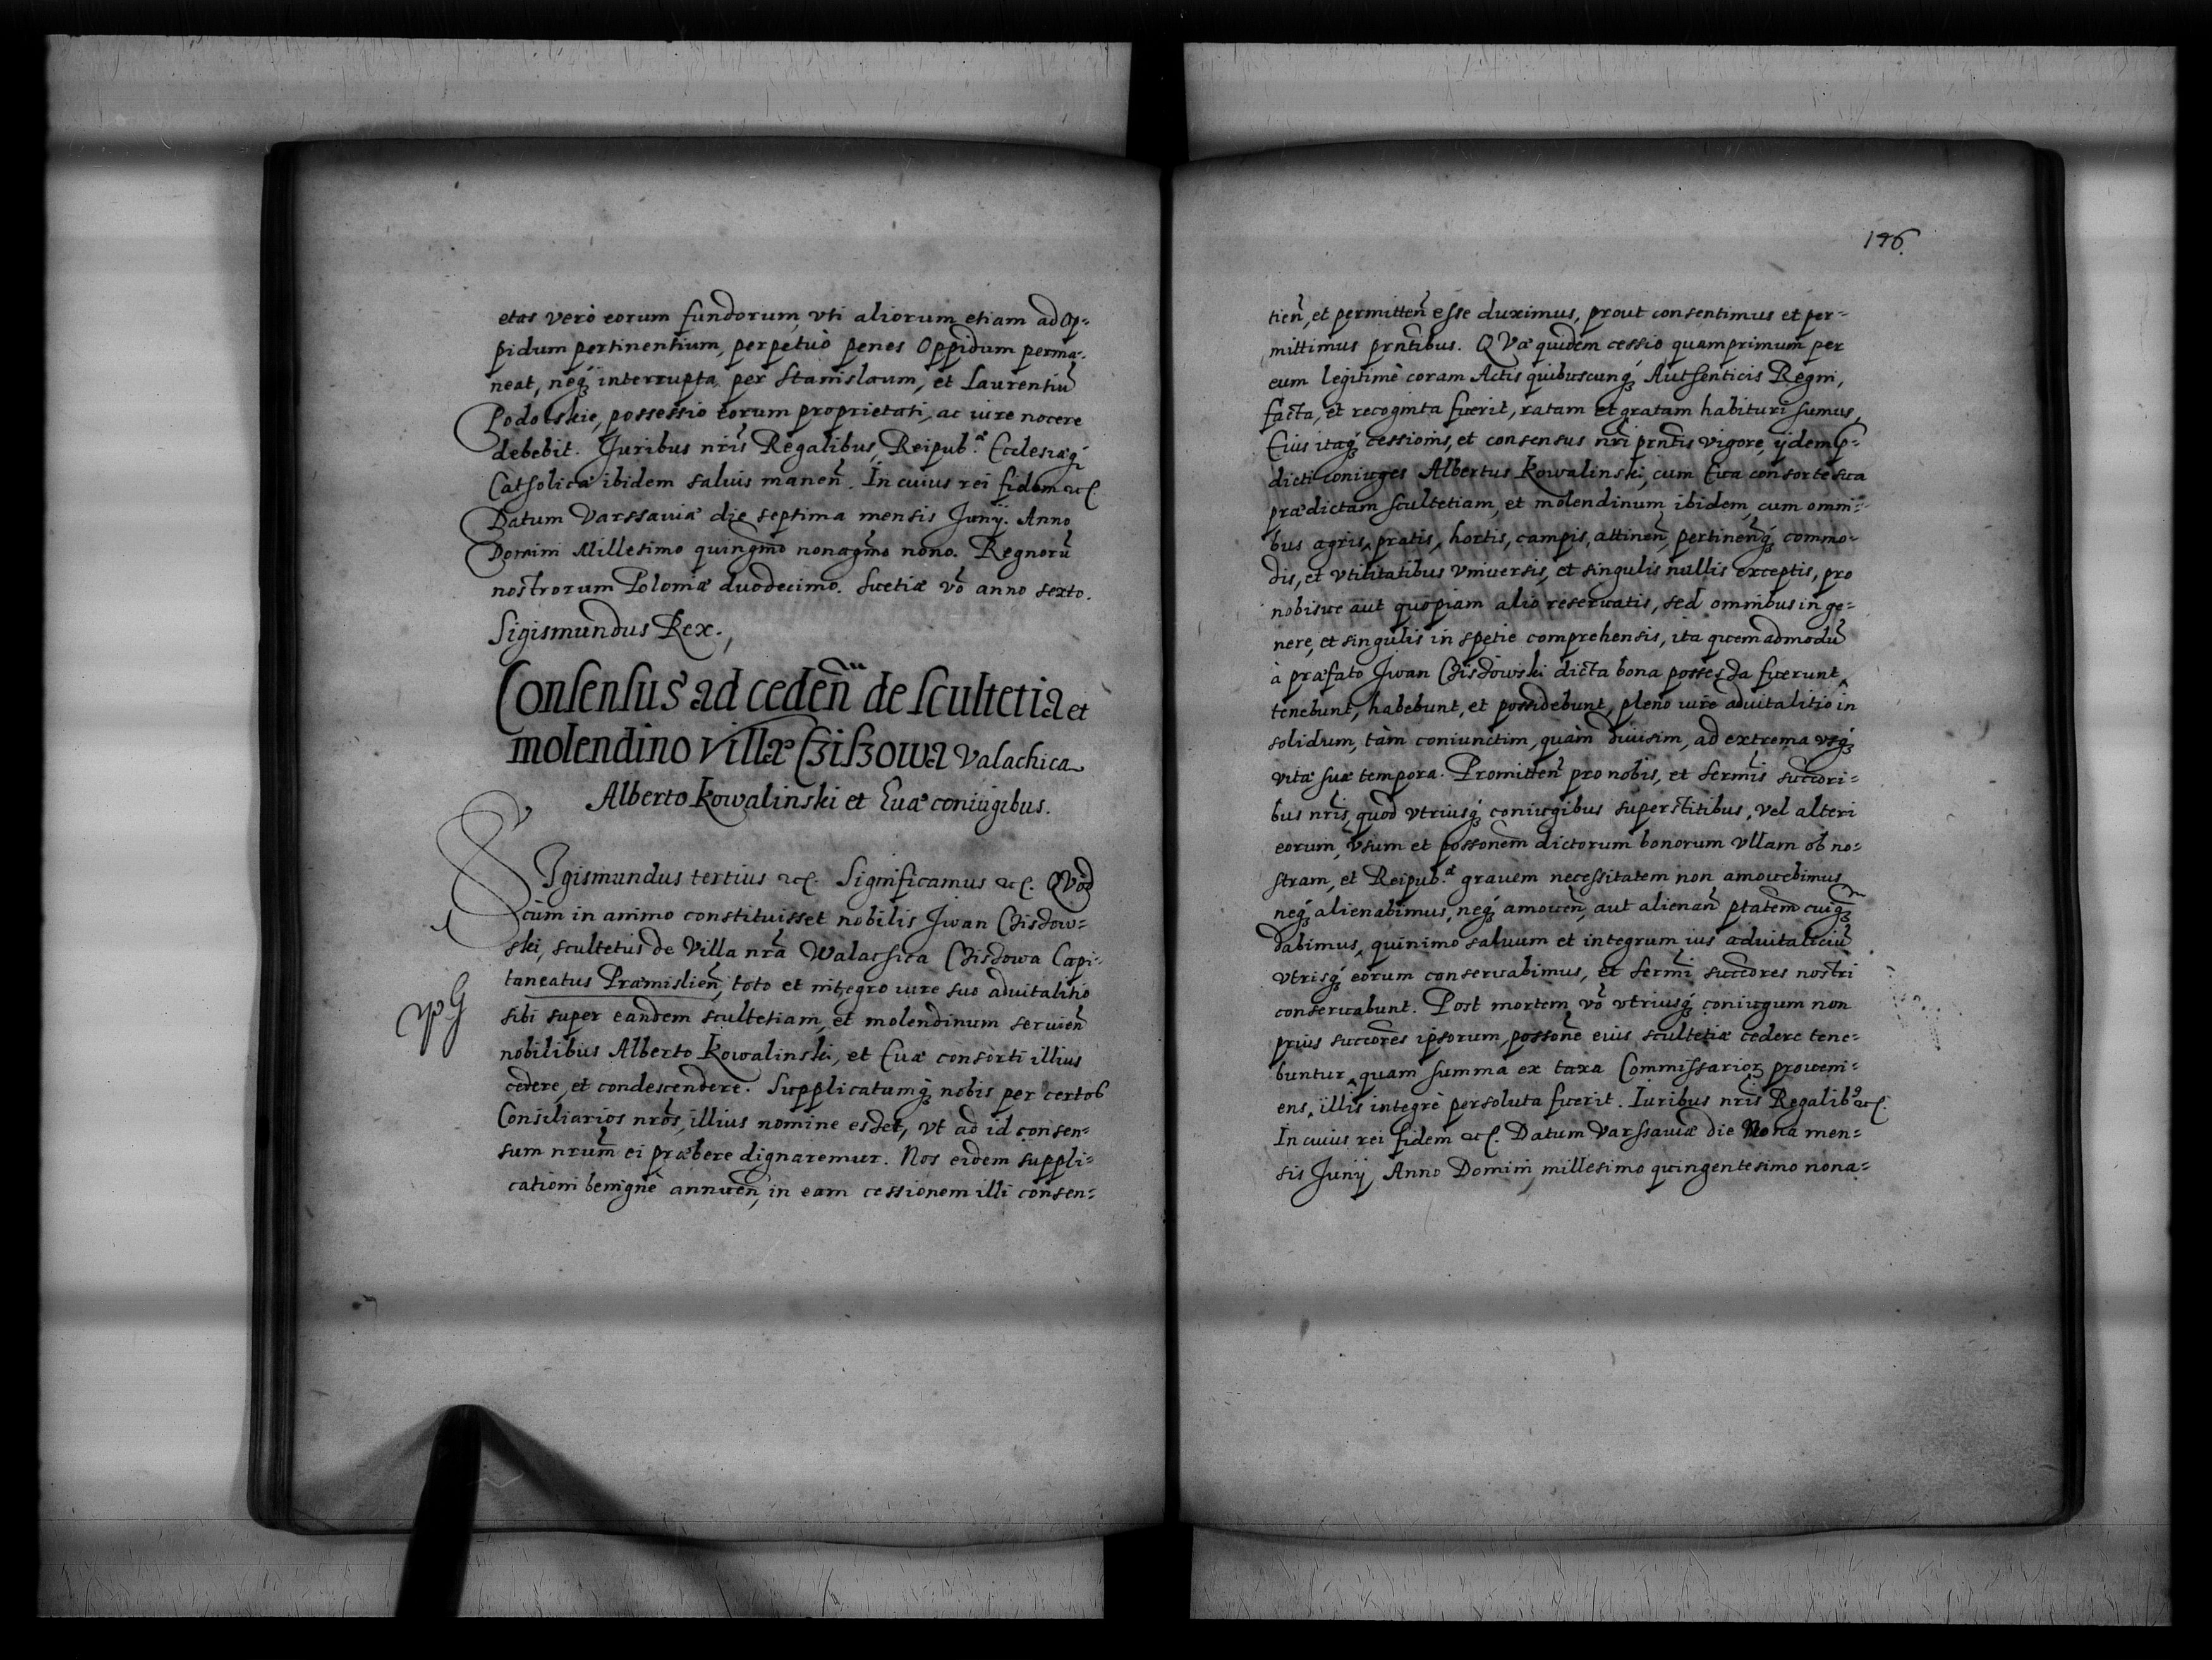 etas verò eorum fundorum, vti aliorum etiam ad Op-
pidum pertinentium, perpetuò penes Oppidum perma-
neat, neq3 interrupta per Stanislaum, et Laurentiũ
Podolskie, possessio eorum proprietati, ac iure nocere
debebit. Juribus nris Regalibus, Reipub.æ Ecclesiæq3
Catholicæ ibidem saluis manen. In cuius rei fidem etc.
Datum Varssauiæ die septima mensis Junij. Anno
Domini Millesimo quingmo nonagmo nono. Regnorũ
nostrorum Poloniæ duodecimo. Suetiæ vo anno sexto.
Sigismundus Rex.
Consensus ad ceden de scultetia et
molendino villæ Cziszowa Valachica
Alberto Kowalinski et Euæ coniugibus.
SIgismundus tertius etc. Significamus etc. QVòd
cùm in animo constituisset nobilis Jwan Czisdow-
ski, scultetus de Villa nra Walachica Czisdowa Capi-
taneatus Præmislien, toto et integro iure suo aduitalitio
sibi super eandem scultetiam, et molendinum seruien
nobilibus Alberto Kowalinski, et Euæ consorti illius
cedere, et condescendere. Supplicatumq3 nobis per certos
Consiliarios nros, illius nomine esset, vt ad id consen-
sum nrum ei præbere dignaremur. Nos eidem suppli-
cationi benignè annuen, in eam cessionem illi consen-
146.
tien, et permitten esse duximus, prout consentimus et per-
mittimus prntibus. QVæ quidem cessio quamprimum per
eum legitimè coram Actis quibuscunq3 Authenticis Regni,
facta, et recognita fuerit, ratam et gratam habituri sumus,
Eius itaq3 cessionis, et consensus nri prntis vigore, ijdem p-
dicti coniuges Albertus Kowalinski, cum Eua consorte sua
prædictam scultetiam, et molendinum ibidem, cum omni-
bus agris, pratis, hortis, campis, attinen, pertinenq3 commo-
dis, et vtilitatibus vniuersis, et singulis nullis exceptis, pro
nobisue aut quopiam alio reseruatis, sed omnibus in ge-
nere, et singulis in spetie comprehensis, ita quemadmodũ
à præfato Jwan Czisdowski dicta bona possessa fuerunt,
tenebunt, habebunt, et possidebunt, pleno iure aduitalitio in
solidum, tàm coniunctim, quàm diuisim, ad extrema vsq3
vitæ suæ tempora. Promitten pro nobis, et sermis succori-
bus nris, quod vtriusq3 coniugibus superstitibus, vel alteri
eorum, vsum et possonem dictorum bonorum vllam ob no-
stram, et Reipub.æ grauem necessitatem non amouebimus
neq3 alienabimus, neq3 amouen, aut alienan ptatem cuiq3
dabimus, quinimo saluum et integrum ius aduitaliciũ
vtrisq3 eorum conseruabimus, et sermi succores nostri
conseruabunt. Post mortem vo vtriusq3 coniugum non
prius succores ipsorum, possone eius scultetiæ cedere tene-
buntur, quam summa ex taxa Commissarioꝝ proueni-
ens, illis integrè persoluta fuerit. Iuribus nris Regalib9 etc.
In cuius rei fidem etc. Datum Varssauiæ die Nona men-
sis Junij, Anno Domini millesimo quingentesimo nona-